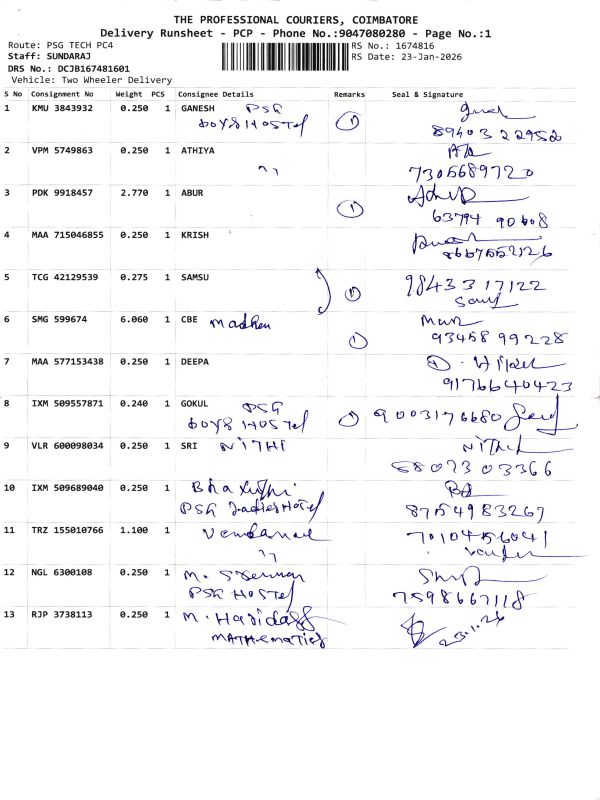 THE PROFESSIONAL COURIERS, COIMBATORE
Delivery Runsheet - PCP - Phone No.:9047080280 - Page No.:1
Route: PSG TECH PC4 RS No.: 1674816
Staff: SUNDARAJ RS Date: 23-Jan-2026
DRS No.: DCJB167481601
Vehicle: Two Wheeler Delivery
S No Consignment No Weight PCS Consignee Details Remarks Seal & Signature
1 KMU 3843932 0.250 1 GANESH PSG
BOYS HOSTel 1 89403 22952
2 VPM 5749863 0.250 1 ATHIYA
" 7305689720
3 PDK 9918457 2.770 1 ABUR
1 63794 90608
4 MAA 715046855 0.250 1 KRISH
8667552126
5 TCG 42129539 0.275 1 SAMSU 9843317122
1
6 SMG 599674 6.060 1 CBE Madhu
1 93458 99228
7 MAA 577153438 0.250 1 DEEPA
9176640423
8 IXM 509557871 0.240 1 GOKUL PSG
BOYS HOSTel 1 9003176680
9 VLR 600098034 0.250 1 SRI NITHI
6807303366
10 IXM 509689040 0.250 1
PSG Ladies Hostel 8754983267
11 TRZ 155010766 1.100 1 7010456041
"
12 NGL 6300108 0.250 1 M.
PSG HOSTel 7598667118
13 RJP 3738113 0.250 1 M. Haridass
MATHematics 23.1.26